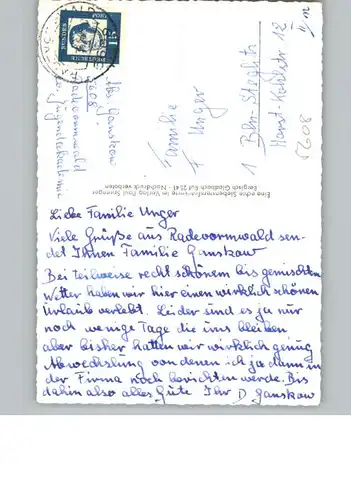 Liebe Familie Unger
Viele Grüße aus Radevormwald sen-
det Ihnen Familie Ganskow
Bei teilweise recht schönem bis gemischten
Wetter haben wir hier einen wirklich schönen
Urlaub verlebt. Leider sind es ja nur
noch wenige Tage die uns bleiben
aber bisher hatten wir wirklich genug
Abwechslung von denen ich ja dann in
der Firma noch berichten werde. Bis
dahin also alles Gute Ihr D Ganskow
Familie
Unger
1 Bln-Steglitz
18
5608
Ganskow
5608
Radevormwald
Jugendakademie
Eine echte Siebenpfennigkarte im Verlag Paul Spranger
Bergisch Gladbach Ruf 2541 - Nachdruck verboten
DEUTSCHE
BUNDES
POST
15